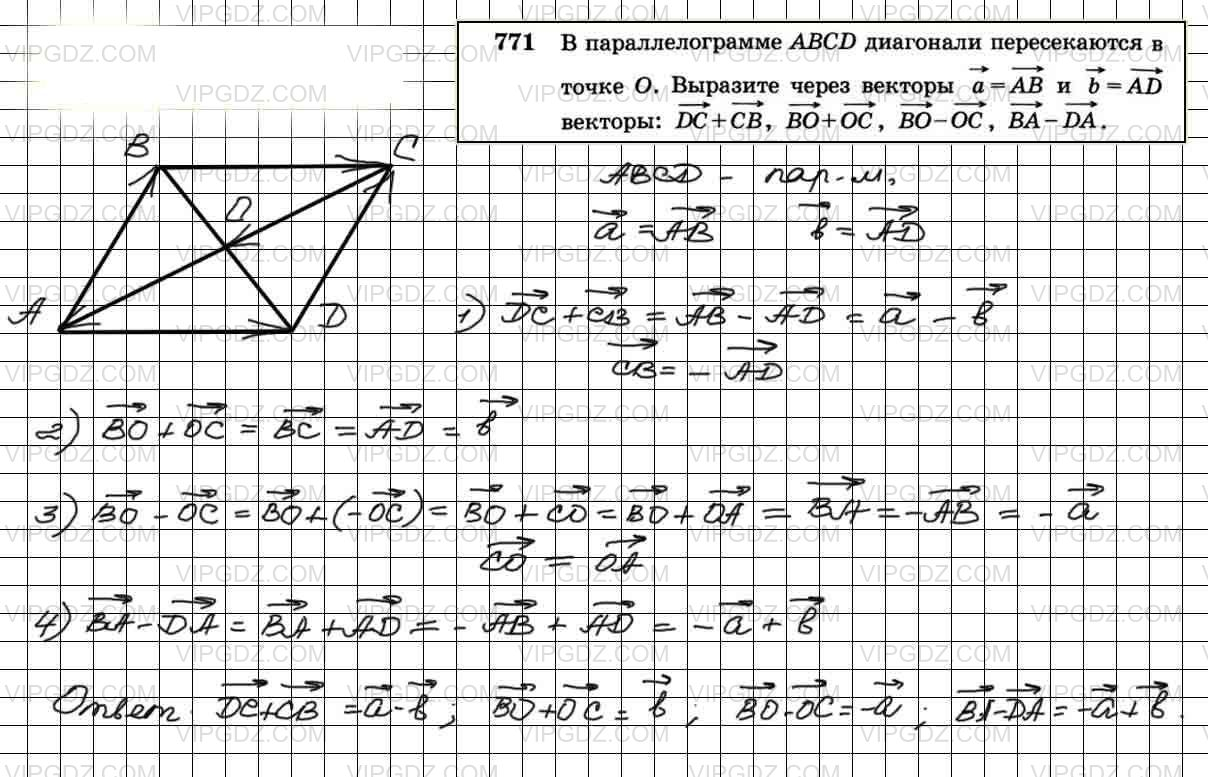 771 В параллелограмме ABCD диагонали пересекаются в
точке O. Выразите через векторы a⃗ = AB⃗ и b⃗ = AD⃗
векторы: DC⃗ + CB⃗, BO⃗ + OC⃗, BO⃗ − OC⃗, BA⃗ − DA⃗.
B C
O
A D
ABCD – пар-м,
a⃗ = AB⃗ b⃗ = AD⃗
1) DC⃗ + CB⃗ = AB⃗ − AD⃗ = a⃗ − b⃗
CB⃗ = − AD⃗
2) BO⃗ + OC⃗ = BC⃗ = AD⃗ = b⃗
3) BO⃗ − OC⃗ = BO⃗ + (−OC⃗) = BO⃗ + CO⃗ = BO⃗ + OA⃗ = BA⃗ = −AB⃗ = − a⃗
CO⃗ = OA⃗
4) BA⃗ − DA⃗ = BA⃗ + AD⃗ = − AB⃗ + AD⃗ = − a⃗ + b⃗
Ответ: DC⃗ + CB⃗ = a⃗ − b⃗; BO⃗ + OC⃗ = b⃗; BO⃗ − OC⃗ = −a⃗; BA⃗ − DA⃗ = −a⃗ + b⃗.
VIPGDZ.COM